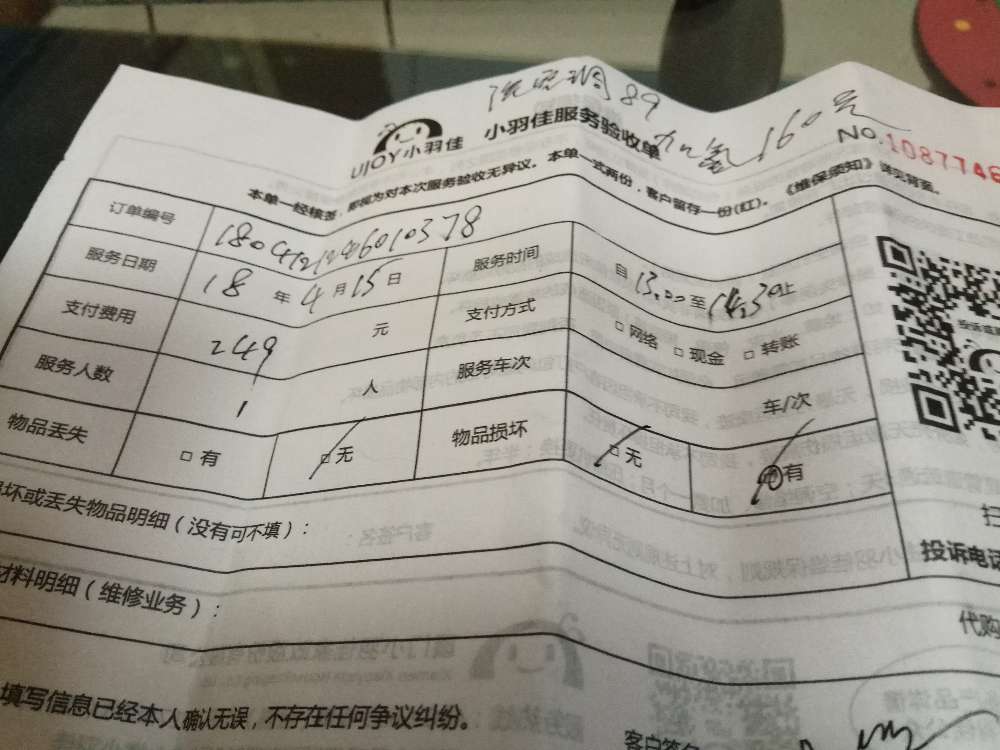 洗空调89
加氢160元
UJOY小羽佳 小羽佳服务验收单
NO.1087746
本单一经核签，即视为对本次服务验收无异议。本单一式两份，客户留存一份(红)。
《维保须知》详见背面。
订单编号
服务日期 18 年 4 月 15 日 服务时间 自 13:00 至 14:30 止
支付费用 249 元 支付方式 □ 网络 □ 现金 □ 转账
服务人数 1 人 服务车次 车/次
物品丢失 □ 有 □ 无 物品损坏 □ 无 □ 有
坏或丢失物品明细（没有可不填）：
材料明细（维修业务）：
填写信息已经本人确认无误，不存在任何争议纠纷。
投诉电话
代购
客户签名